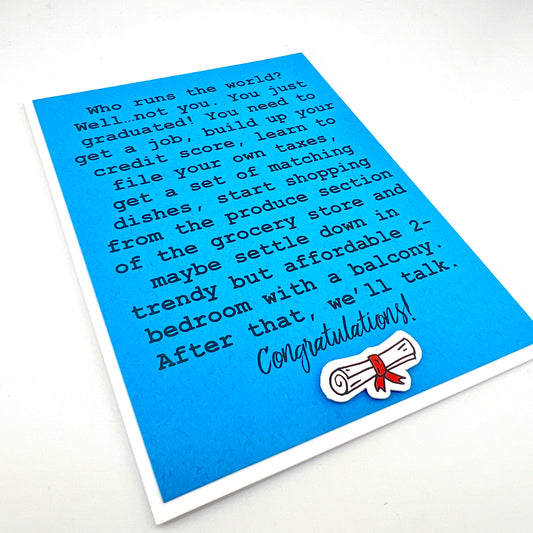 Who runs the world?
Well...not you. You just
graduated! You need to
get a job, build up your
credit score, learn to
file your own taxes,
get a set of matching
dishes, start shopping
from the produce section
of the grocery store and
maybe settle down in
trendy but affordable 2-
bedroom with a balcony.
After that, we'll talk.
Congratulations!